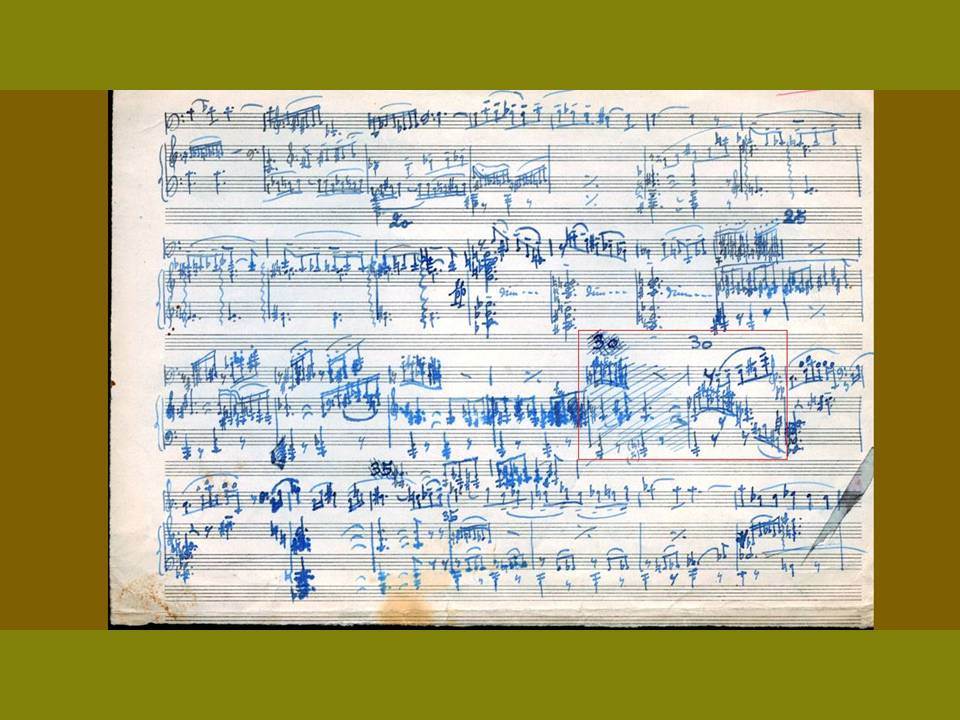 20 25
dim--- dim--- dim---
30 30
35
35